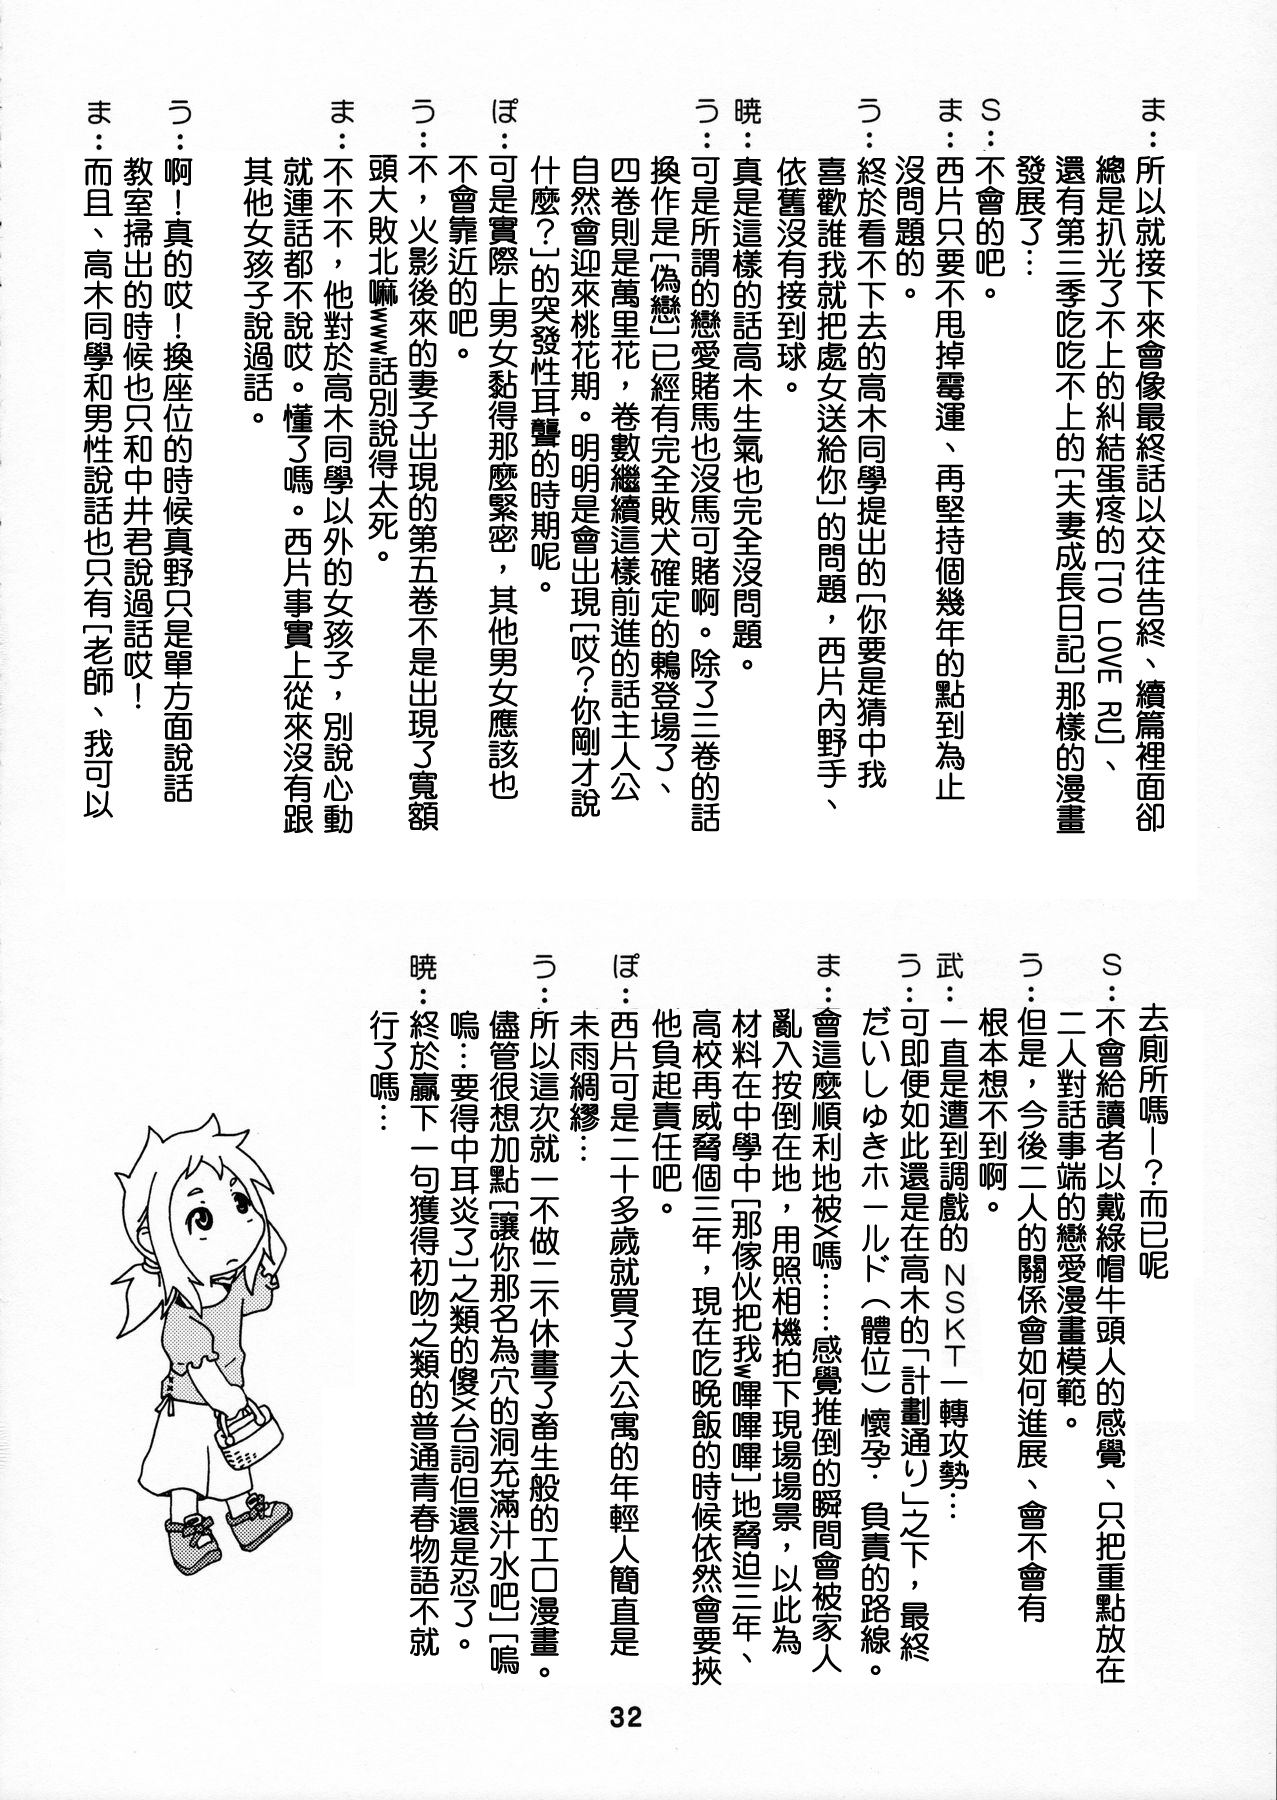 ま：所以就接下來會像最終話以交往告終、續篇裡面卻
總是扒光了不上的糾結蛋疼的[TO LOVE RU]、
還有第三季吃吃不上的[夫妻成長日記]那樣的漫畫
發展了…
S：不會的吧。
ま：西片只要不甩掉霉運、再堅持個幾年的點到為止
沒問題的。
う：終於看不下去的高木同學提出的[你要是猜中我
喜歡誰我就把處女送給你]的問題，西片內野手、
依舊沒有接到球。
暁：真是這樣的話高木生氣也完全沒問題。
う：可是所謂的戀愛賭馬也沒馬可賭啊。除了三卷的話
換作是[偽戀]已經有完全敗犬確定的鶫登場了、
四卷則是萬里花，卷數繼續這樣前進的話主人公
自然會迎來桃花期。明明是會出現[哎？你剛才說
什麼？]的突發性耳聾的時期呢。
ぽ：可是實際上男女黏得那麼緊密，其他男女應該也
不會靠近的吧。
う：不，火影後來的妻子出現的第五卷不是出現了寬額
頭大敗北嘛www話別說得太死。
ま：不不不，他對於高木同學以外的女孩子，別說心動
就連話都不說哎。懂了嗎。西片事實上從來沒有跟
其他女孩子說過話。
う：啊！真的哎！換座位的時候真野只是單方面說話
教室掃出的時候也只和中井君說過話哎！
ま：而且、高木同學和男性說話也只有[老師、我可以
去廁所嗎—？而已呢
S：不會給讀者以戴綠帽牛頭人的感覺、只把重點放在
二人對話事端的戀愛漫畫模範。
う：但是，今後二人的關係會如何進展、會不會有
根本想不到啊。
武：一直是遭到調戲的NSKT一轉攻勢…
う：可即便如此還是在高木的「計劃通り」之下，最終
だいしゅきホールド（體位）懷孕．負責的路線。
ま：會這麼順利地被X嗎……感覺推倒的瞬間會被家人
亂入按倒在地，用照相機拍下現場場景，以此為
材料在中學中[那傢伙把我w嗶嗶嗶]地脅迫三年、
高校再威脅個三年，現在吃晚飯的時候依然會要挾
他負起責任吧。
ぽ：西片可是二十多歲就買了大公寓的年輕人簡直是
未雨綢繆…
う：所以這次就一不做二不休畫了畜生般的工口漫畫。
儘管很想加點[讓你那名為穴的洞充滿汁水吧][嗚
嗚…要得中耳炎了]之類的傻X台詞但還是忍了。
暁：終於贏下一句獲得初吻之類的普通青春物語不就
行了嗎…
32